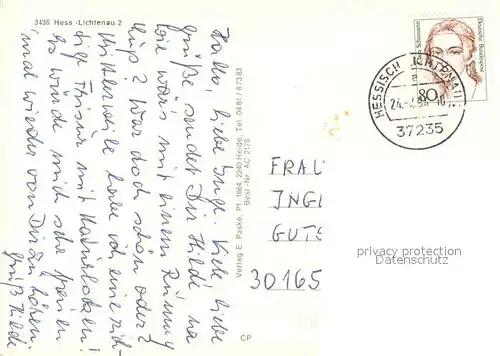 3436 Hess.-Lichtenau 2
Hallo, liebe Inge. Viele liebe
Grüße sendet Dir Hilde na
wie wärs mit einem
war doch schön oder?
Mittlerweile habe ich eine
Frisur mit Naturlocken!
Es würde mich sehr freuen
mal wieder von Dir zu hören.
Gruß Hilde
Verlag E. Paske, Pf. 1664, 2240 Heide, Tel. 0481/87383
Best.-Nr. AC 2178
CP
Deutsche Bundespost
80
HESSISCH LICHTENAU
37235
FRAU
INGE
GUTS
30165
privacy protection
Datenschutz